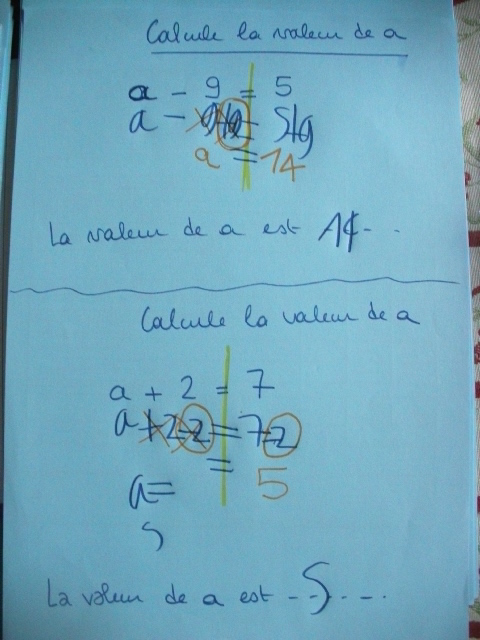 Calcule la valeur de a
a - 9 = 5
a - 9+9 = 5+9
a = 14
La valeur de a est 14...
Calcule la valeur de a
a + 2 = 7
a+2-2 = 7-2
= 5
a=
5
La valeur de a est ..5....